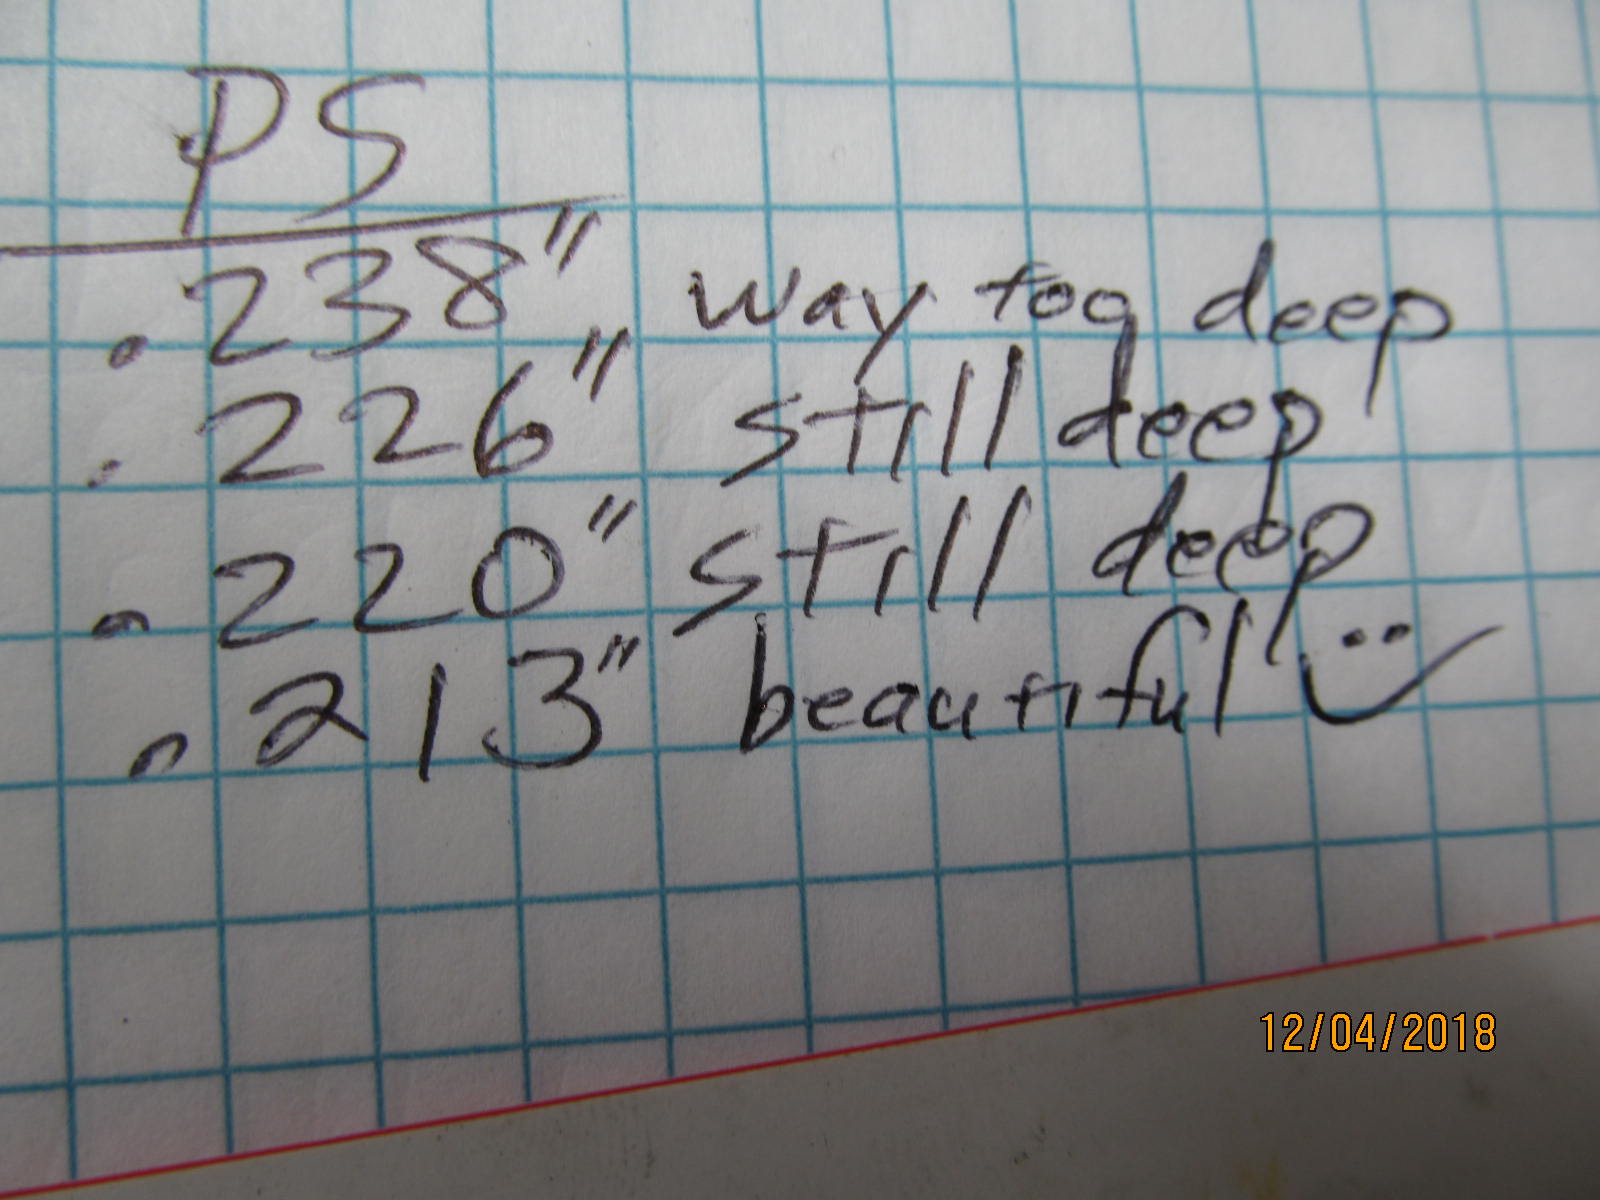 PS
.238" way too deep
.226" still deep
.220" still deep
.213" beautiful
12/04/2018